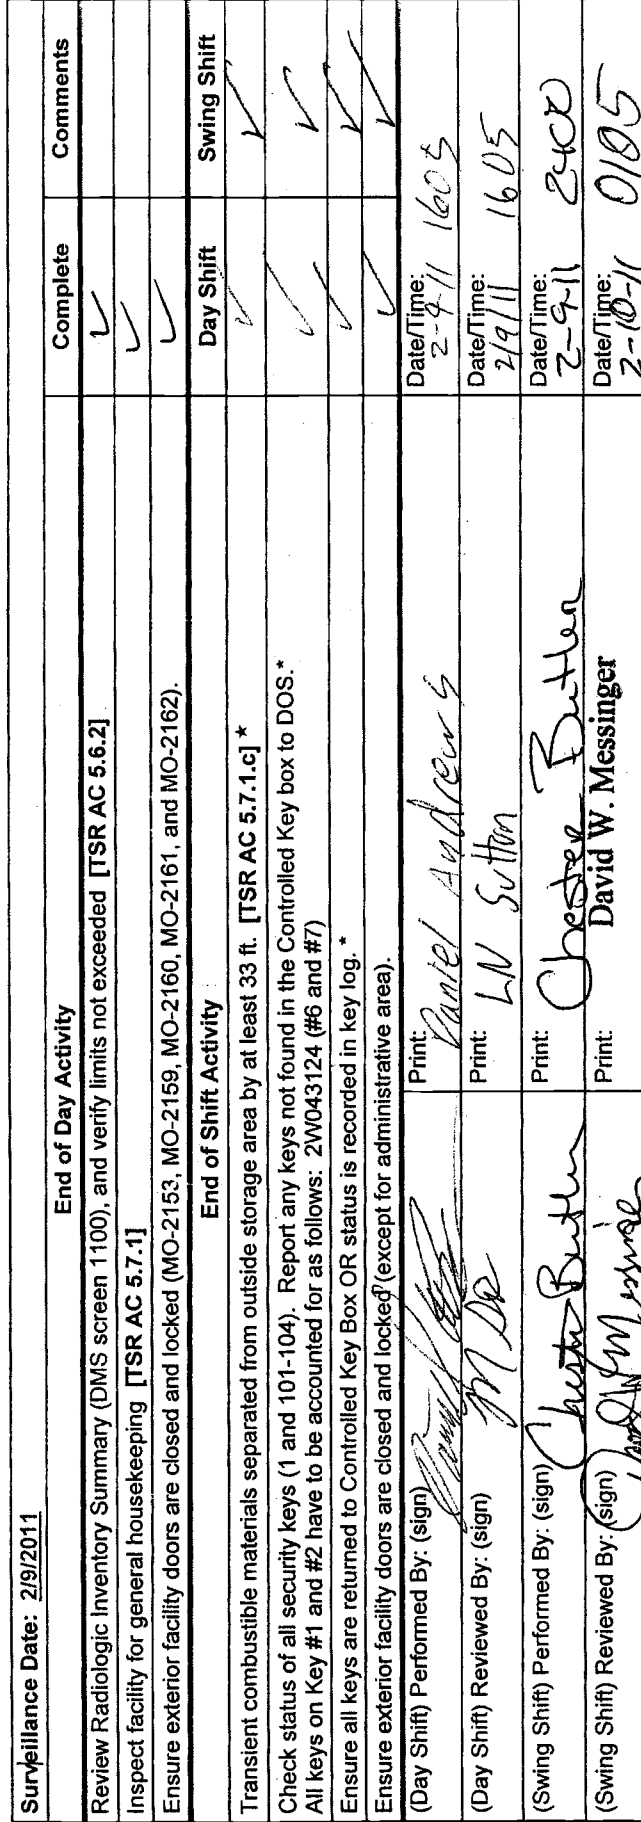 Surveillance Date: 2/9/2011
End of Day Activity Complete Comments
Review Radiologic Inventory Summary (DMS screen 1100), and verify limits not exceeded [TSR AC 5.6.2] ✓
Inspect facility for general housekeeping [TSR AC 5.7.1] ✓
Ensure exterior facility doors are closed and locked (MO-2153, MO-2159, MO-2160, MO-2161, and MO-2162). ✓
End of Shift Activity Day Shift Swing Shift
Transient combustible materials separated from outside storage area by at least 33 ft. [TSR AC 5.7.1.c] * ✓ ✓
Check status of all security keys (1 and 101-104). Report any keys not found in the Controlled Key box to DOS.* ✓ ✓
All keys on Key #1 and #2 have to be accounted for as follows: 2W043124 (#6 and #7)
Ensure all keys are returned to Controlled Key Box OR status is recorded in key log. * ✓ ✓
Ensure exterior facility doors are closed and locked (except for administrative area). ✓ ✓
(Day Shift) Performed By: (sign) Print: Daniel Andrews Date/Time: 2-9-11 1605
(Day Shift) Reviewed By: (sign) Print: LN Sutton Date/Time: 2/9/11 1605
(Swing Shift) Performed By: (sign) Chester Butler Print: Chester Butler Date/Time: 2-9-11 2400
(Swing Shift) Reviewed By: (sign) David W Messinger Print: David W. Messinger Date/Time: 2-10-11 0105